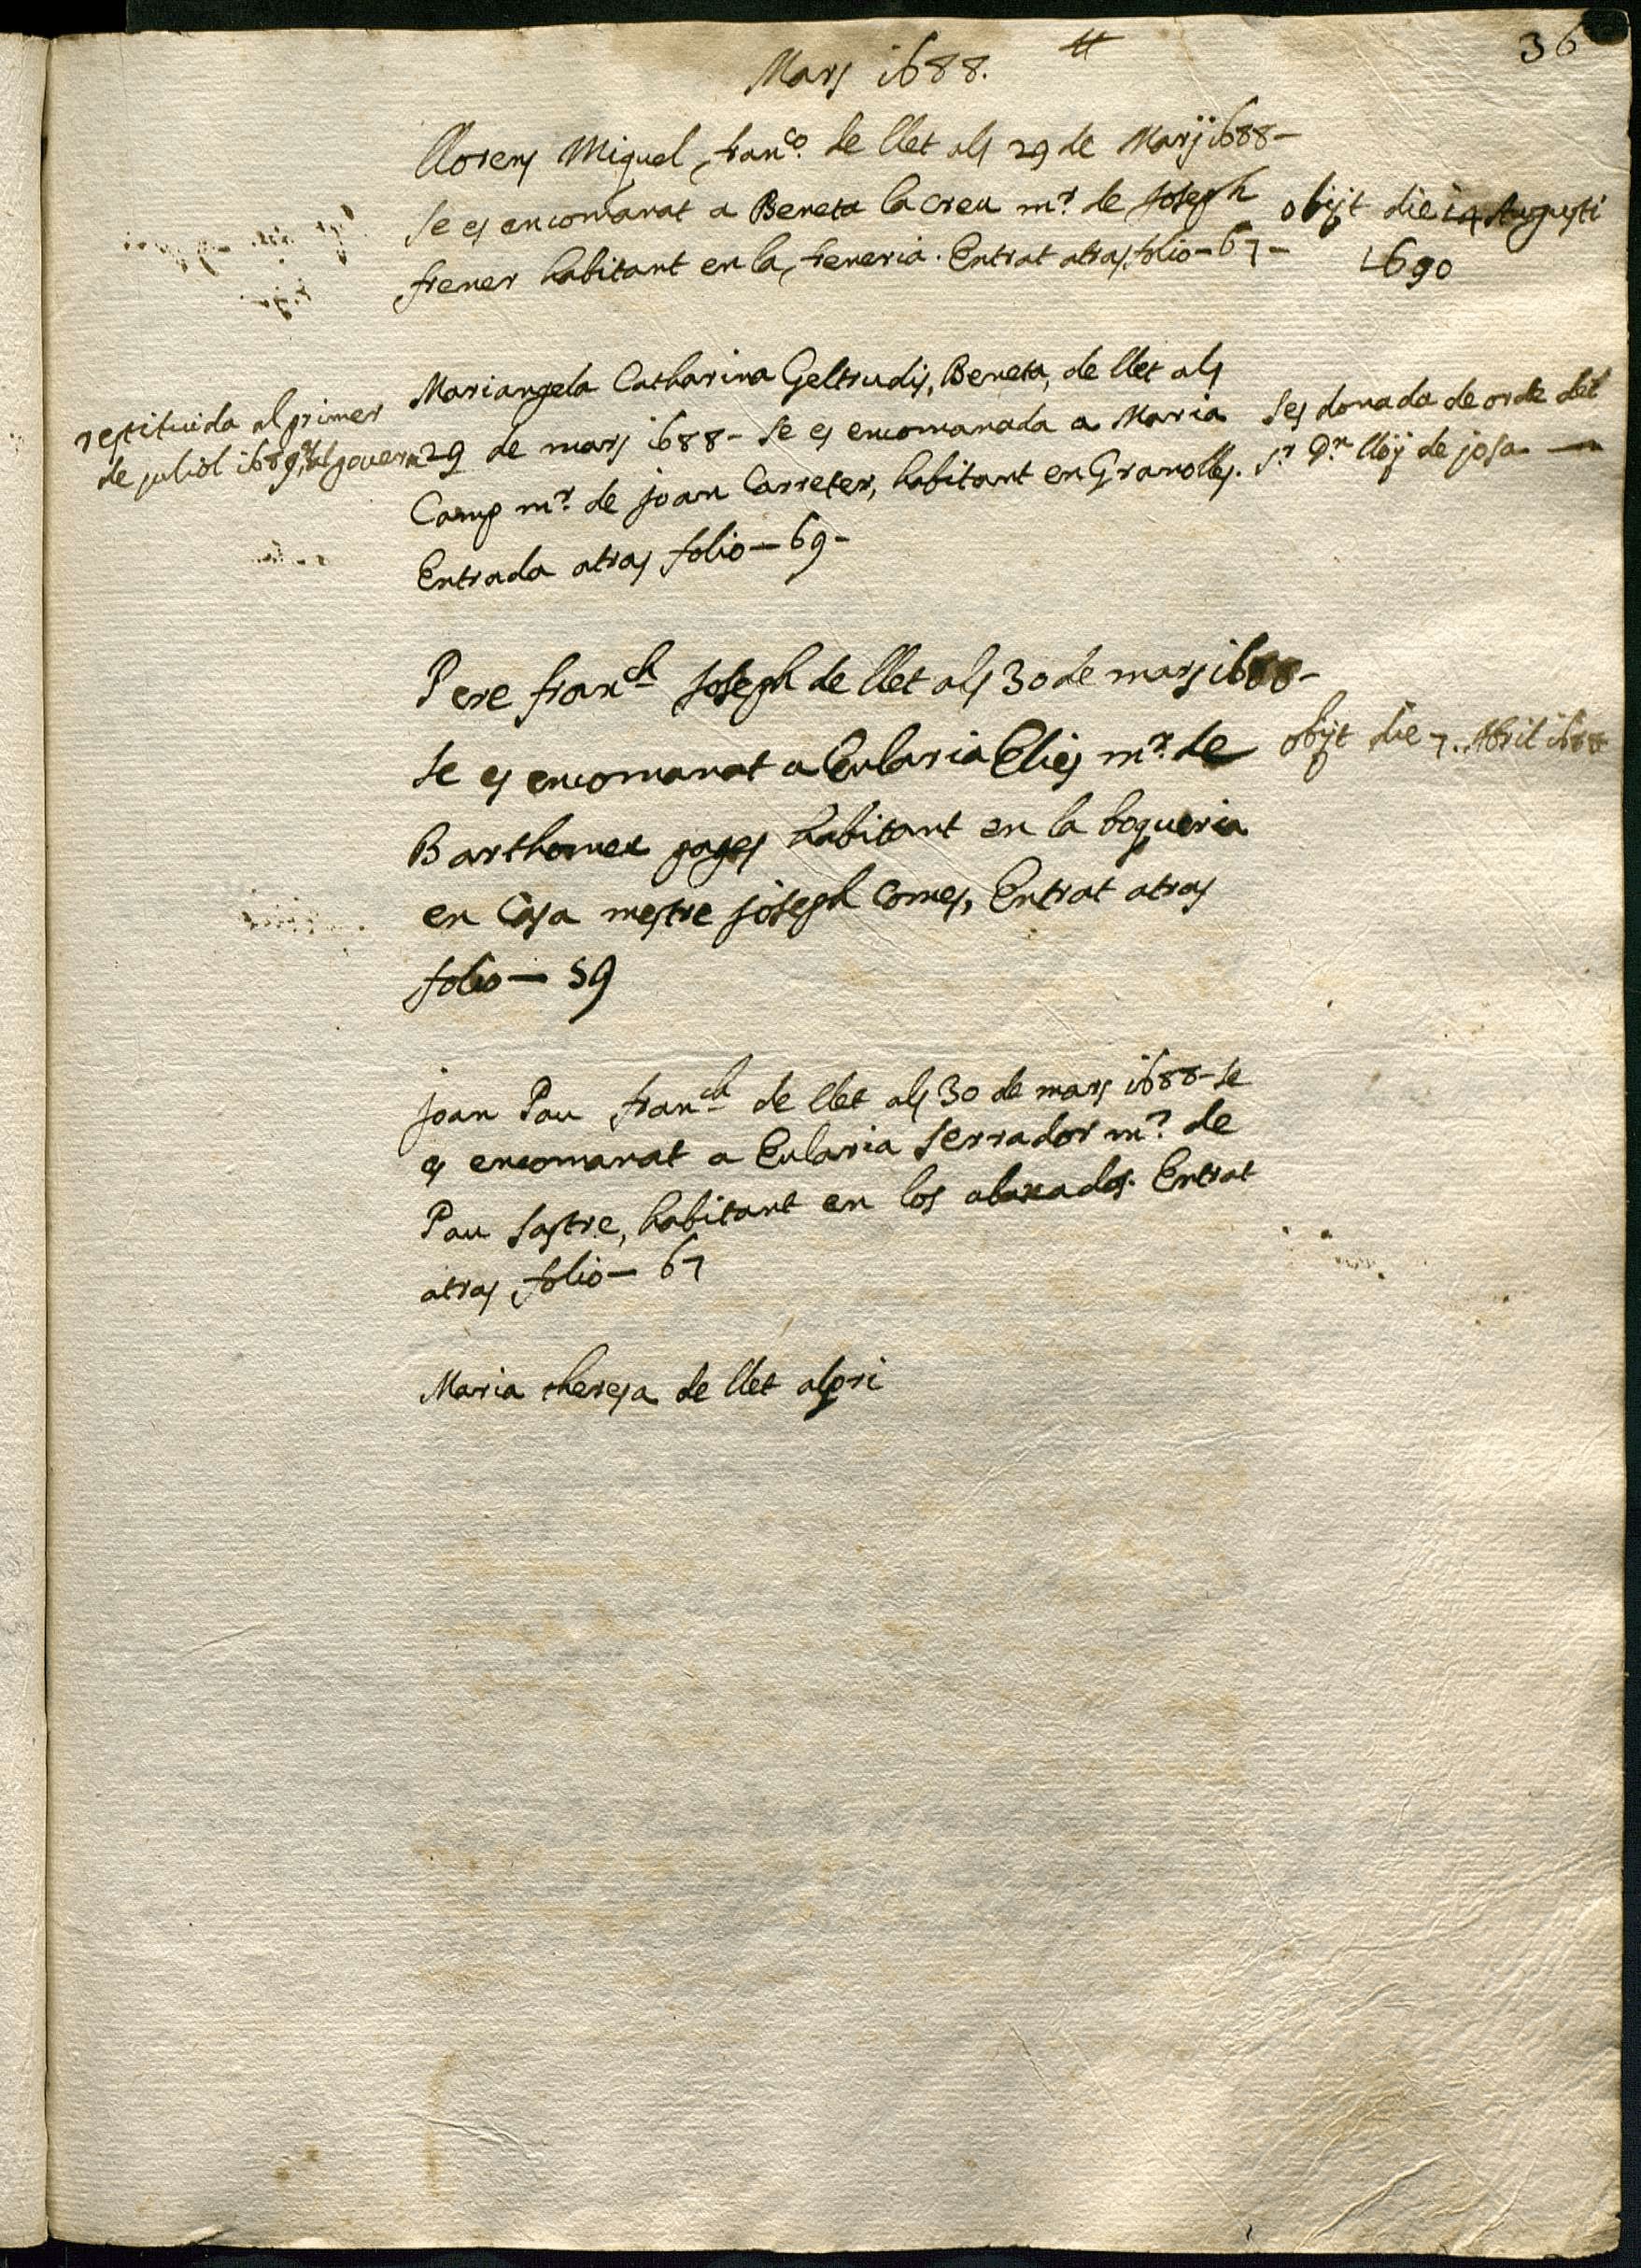 36
Mars 1688.
Llorens Miquel, franco. de llet als 29 de Mars 1688-
se es encomanat a Beneta la creu mr. de Joseph
frener habitant en la freneria. Entrat atras folio-67-
obijt die 14 Augusti
1690
Mariangela Catharina Geltrudis, Beneta, de llet als
29 de mars 1688- se es encomanada a Maria
Camp mr. de joan Carreter, habitant en Granolles.
Entrada atras folio-69-
restituida al primer
de juliol 1689
ses donada de orde del
Sr. Dn lloÿ de josa
Pere franch Joseph de llet als 30 de mars 1688-
se es encomanat a Eularia Elies mr. de
Barthomeu pages habitant en la boqueria
en Casa mestre joseph Comes, Entrat atras
folio- 59
obijt die 7. Abril 1688
joan Pau franch de llet als 30 de mars 1688- se
es encomanat a Eularia serrador mr. de
Pau sastre, habitant en los Entrat
atras folio- 67
Maria theresa de llet als pri